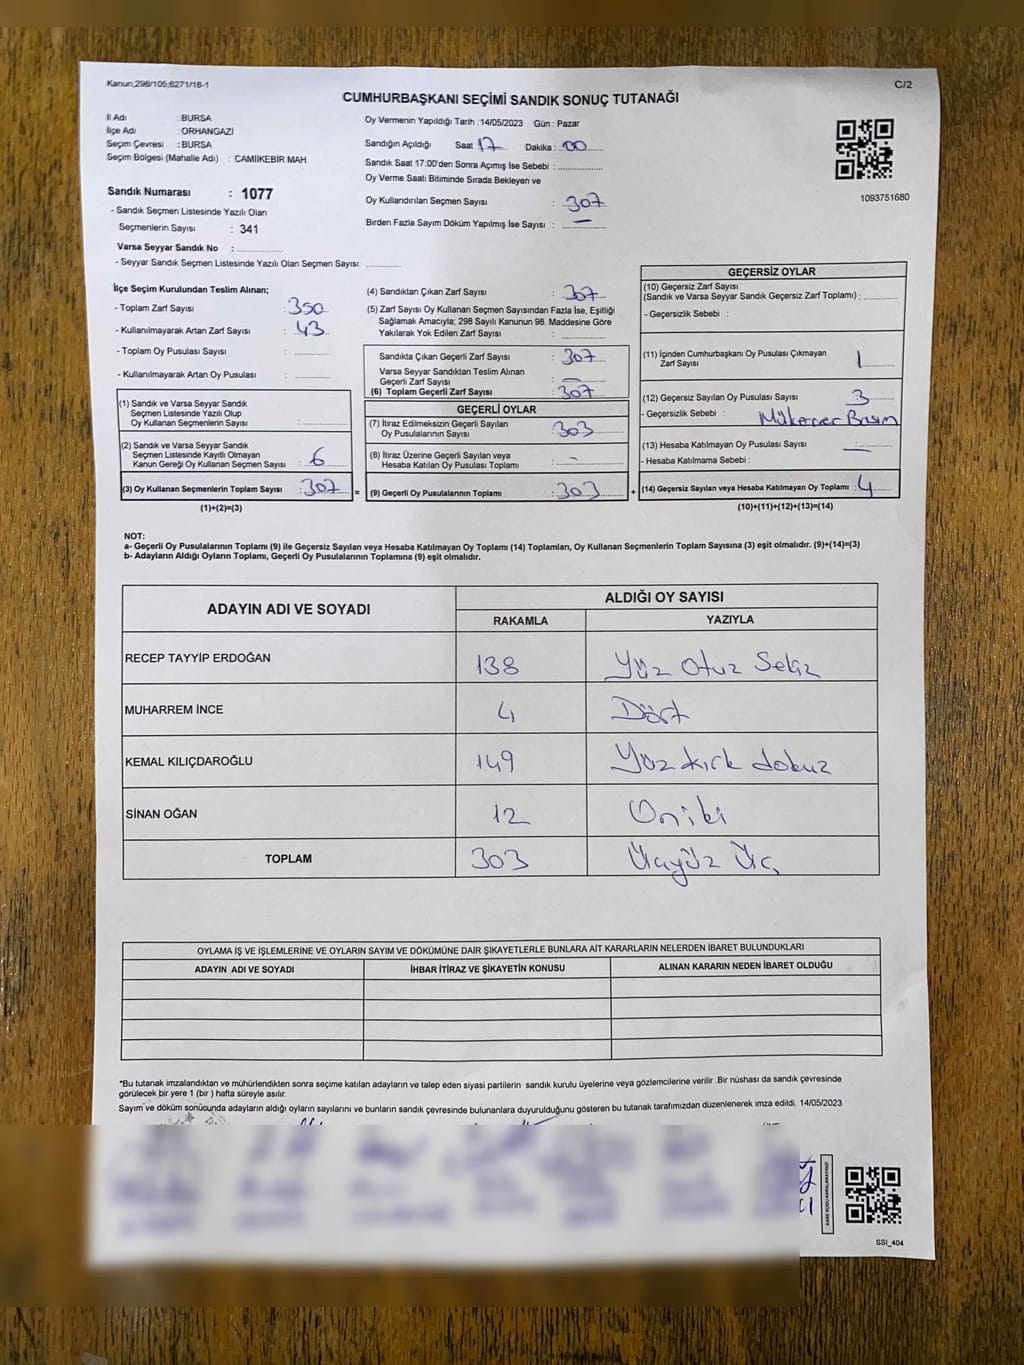 Kanun;298/105;6271/18-1
C/2
CUMHURBAŞKANI SEÇİMİ SANDIK SONUÇ TUTANAĞI
İl Adı : BURSA
İlçe Adı : ORHANGAZİ
Seçim Çevresi : BURSA
Seçim Bölgesi (Mahalle Adı) : CAMİİKEBİR MAH.
Sandık Numarası : 1077
- Sandık Seçmen Listesinde Yazılı Olan
Seçmenlerin Sayısı : 341
Varsa Seyyar Sandık No :
- Seyyar Sandık Seçmen Listesinde Yazılı Olan Seçmen Sayısı:
Oy Vermenin Yapıldığı Tarih :14/05/2023 Gün : Pazar
Sandığın Açıldığı Saat 17 Dakika : 00
Sandık Saat 17:00'den Sonra Açımış İse Sebebi :
Oy Verme Saati Bitiminde Sırada Bekleyen ve
Oy Kullandırılan Seçmen Sayısı : 307
Birden Fazla Sayım Döküm Yapılmış İse Sayısı : —
1093751680
İlçe Seçim Kurulundan Teslim Alınan;
- Toplam Zarf Sayısı : 350
- Kullanılmayarak Artan Zarf Sayısı : 43
- Toplam Oy Pusulası Sayısı :
- Kullanılmayarak Artan Oy Pusulası :
(1) Sandık ve Varsa Seyyar Sandık
Seçmen Listesinde Yazılı Olup
Oy Kullanan Seçmenlerin Sayısı :
(2) Sandık ve Varsa Seyyar Sandık
Seçmen Listesinde Kayıtlı Olmayan
Kanun Gereği Oy Kullanan Seçmen Sayısı : 6
(3) Oy Kullanan Seçmenlerin Toplam Sayısı : 307 =
(1)+(2)=(3)
(4) Sandıktan Çıkan Zarf Sayısı : 307
(5) Zarf Sayısı Oy Kullanan Seçmen Sayısından Fazla İse, Eşitliği
Sağlamak Amacıyla, 298 Sayılı Kanunun 98. Maddesine Göre
Yakılarak Yok Edilen Zarf Sayısı :
Sandıkta Çıkan Geçerli Zarf Sayısı : 307
Varsa Seyyar Sandıktan Teslim Alınan
Geçerli Zarf Sayısı : —
(6) Toplam Geçerli Zarf Sayısı : 307
GEÇERLİ OYLAR
(7) İtiraz Edilmeksizin Geçerli Sayılan
Oy Pusulalarının Sayısı : 303
(8) İtiraz Üzerine Geçerli Sayılan veya
Hesaba Katılan Oy Pusulası Toplamı : -
(9) Geçerli Oy Pusulalarının Toplamı : 303 +
GEÇERSİZ OYLAR
(10) Geçersiz Zarf Sayısı
(Sandık ve Varsa Seyyar Sandık Geçersiz Zarf Toplamı) :
- Geçersizlik Sebebi :
(11) İçinden Cumhurbaşkanı Oy Pusulası Çıkmayan
Zarf Sayısı : 1
(12) Geçersiz Sayılan Oy Pusulası Sayısı : 3
- Geçersizlik Sebebi : Mükerrer Basım
(13) Hesaba Katılmayan Oy Pusulası Sayısı : —
- Hesaba Katılmama Sebebi :
(14) Geçersiz Sayılan veya Hesaba Katılmayan Oy Toplamı : 4
(10)+(11)+(12)+(13)=(14)
NOT:
a- Geçerli Oy Pusulalarının Toplamı (9) ile Geçersiz Sayılan veya Hesaba Katılmayan Oy Toplamı (14) Toplamları, Oy Kullanan Seçmenlerin Toplam Sayısına (3) eşit olmalıdır. (9)+(14)=(3)
b- Adayların Aldığı Oyların Toplamı, Geçerli Oy Pusulalarının Toplamına (9) eşit olmalıdır.
ADAYIN ADI VE SOYADI
ALDIĞI OY SAYISI
RAKAMLA YAZIYLA
RECEP TAYYİP ERDOĞAN 138 Yüz Otuz Sekiz
MUHARREM İNCE 4 Dört
KEMAL KILIÇDAROĞLU 149 Yüz kırk dokuz
SİNAN OĞAN 12 Oniki
TOPLAM 303 Üçyüz Üç
OYLAMA İŞ VE İŞLEMLERİNE VE OYLARIN SAYIM VE DÖKÜMÜNE DAİR ŞİKAYETLERLE BUNLARA AİT KARARLARIN NELERDEN İBARET BULUNDUKLARI
ADAYIN ADI VE SOYADI İHBAR İTİRAZ VE ŞİKAYETİN KONUSU ALINAN KARARIN NEDEN İBARET OLDUĞU
*Bu tutanak imzalandıktan ve mühürlendikten sonra seçime katılan adayların ve talep eden siyasi partilerin sandık kurulu üyelerine veya gözlemcilerine verilir .Bir nüshası da sandık çevresinde
görülecek bir yere 1 (bir ) hafta süreyle asılır.
Sayım ve döküm sonucunda adayların aldığı oyların sayılarını ve bunların sandık çevresinde bulunanlara duyurulduğunu gösteren bu tutanak tarafımızdan düzenlenerek imza edildi. 14/05/2023
KARE KODU KARALAMAYINIZ!
SSI_404